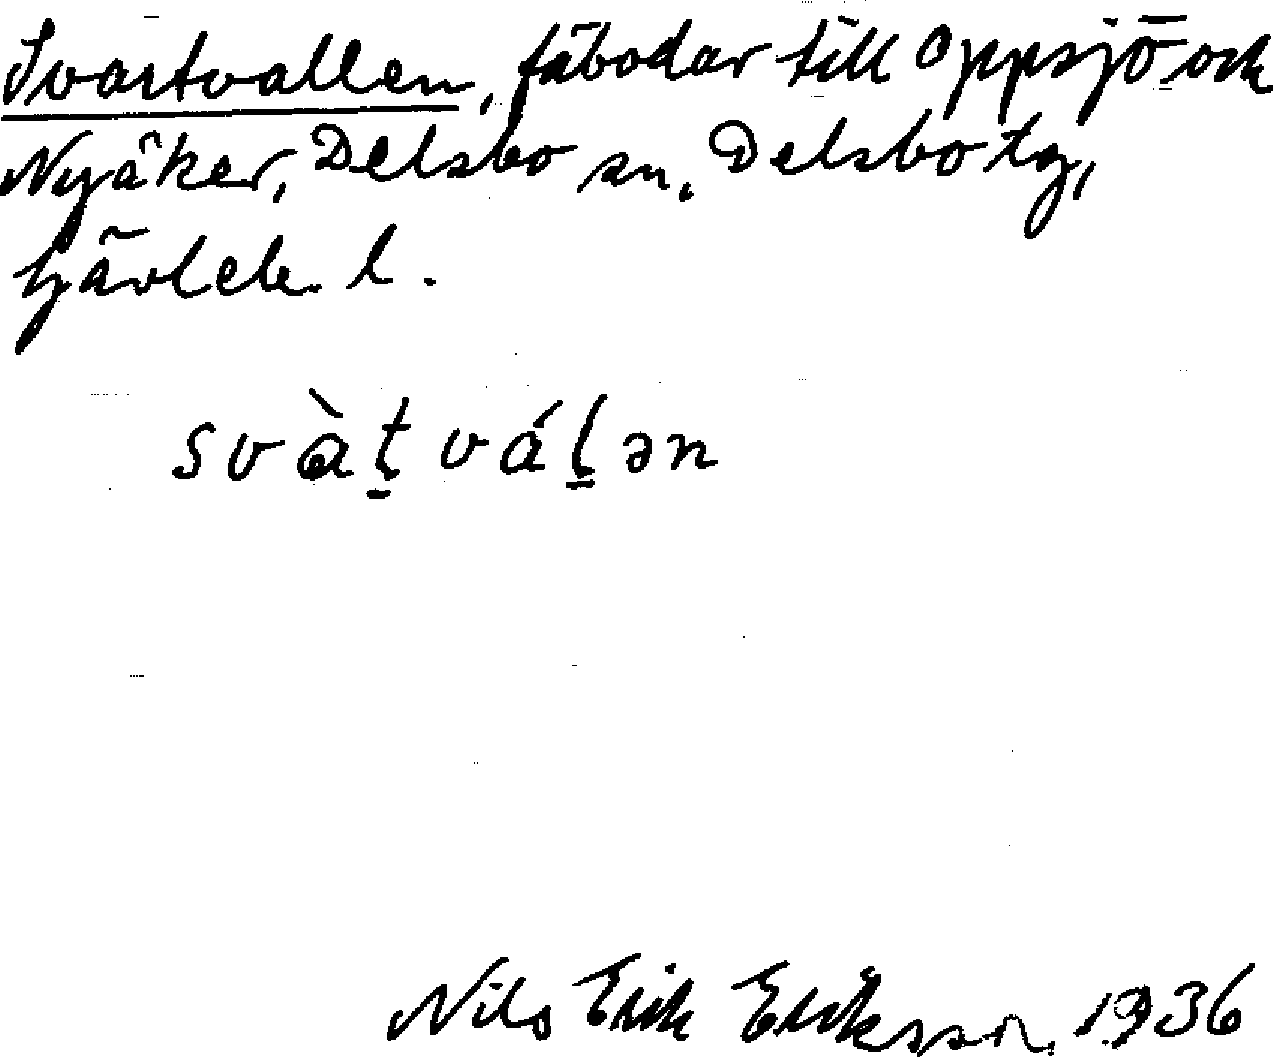 Svartvallen, fäbodar till Oppsjö och
Nyåker, Delsbo sn. Delsbo tg,
Gävleb. l.
svàt̠ vál̠ən
Nils Erik Eriksson, 1936